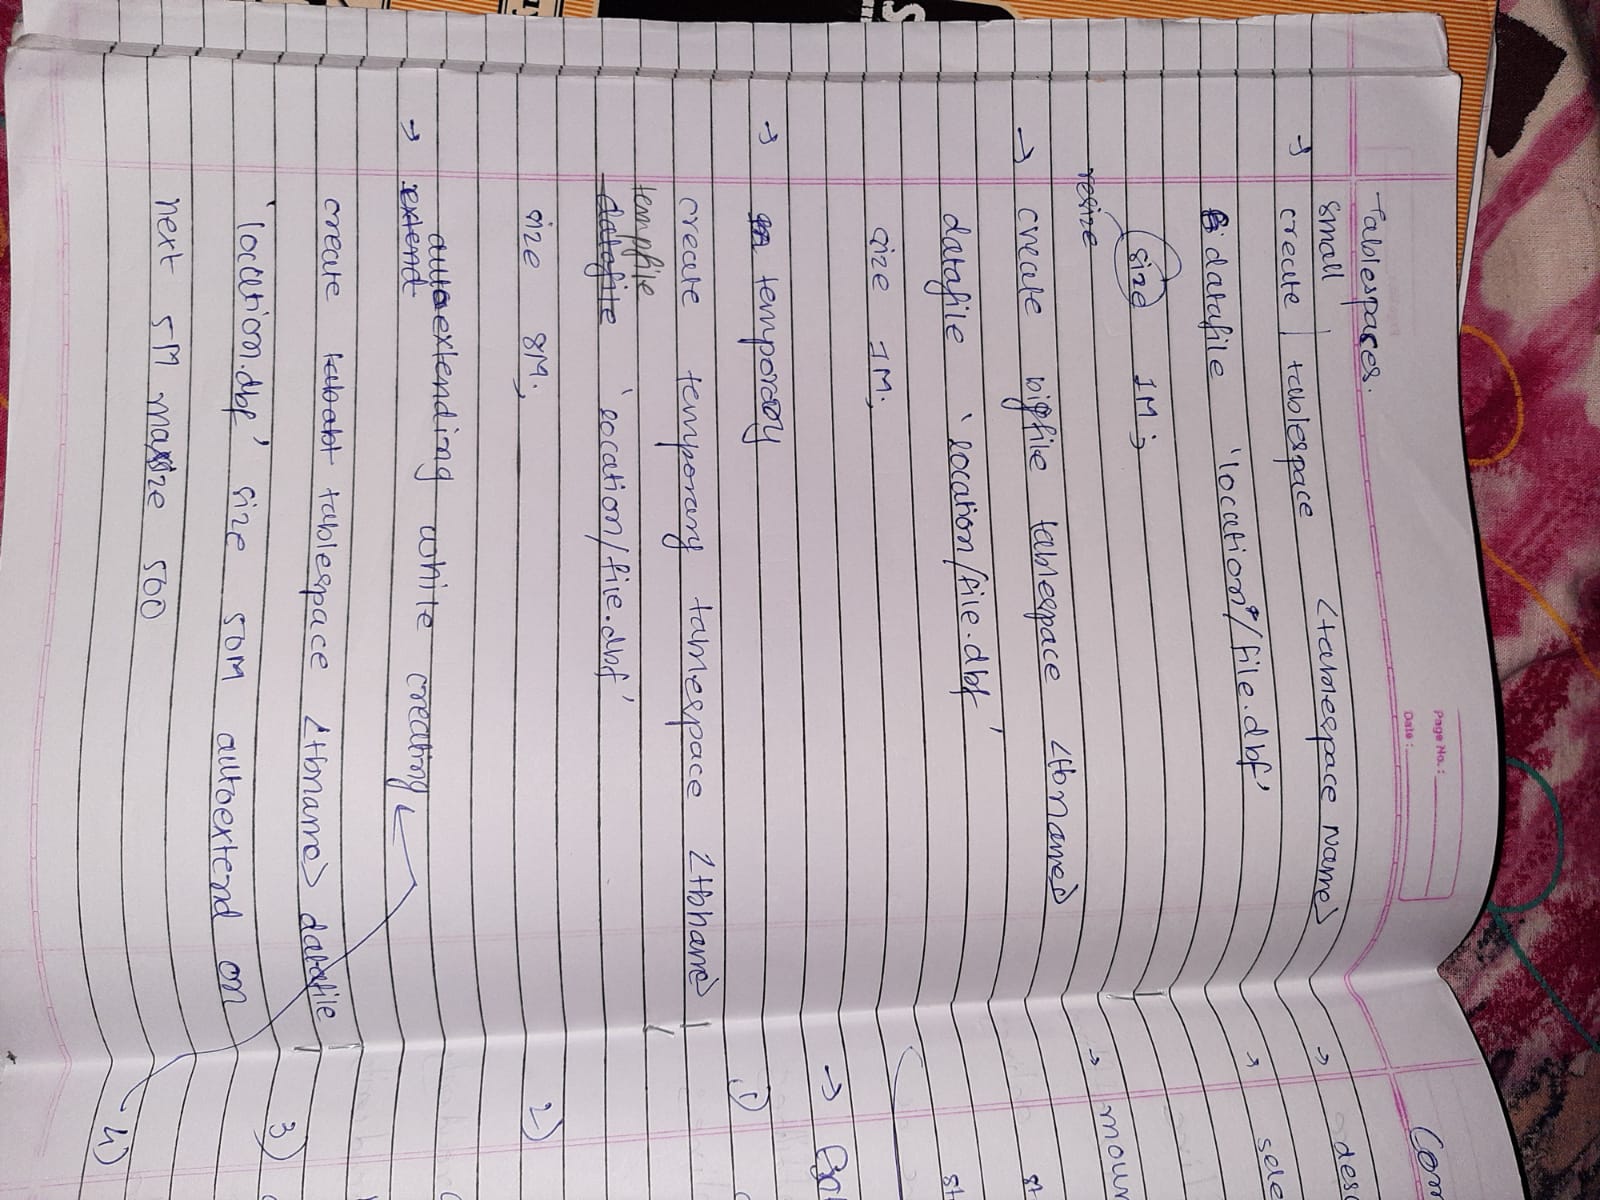 Page No.:
Date:
Tablespaces.
→ small
create tablespace <tablespace Name>
datafile 'location/file.dbf'
size 1M;
resize
→ create bigfile tablespace <tbname>
datafile 'location/file.dbf'
size 1M;
→ temporary
create temporary tablespace <tbname>
tempfile
datafile 'location/file.dbf'
size 8M;
autoextending while creating
→ extend
create tablespace <tbname> datafile
'location.dbf' size 50M autoextend on
next 5M maxsize 500
Com
→ desc
→ sele
→ moun
st
st
→
1)
2)
3)
4)